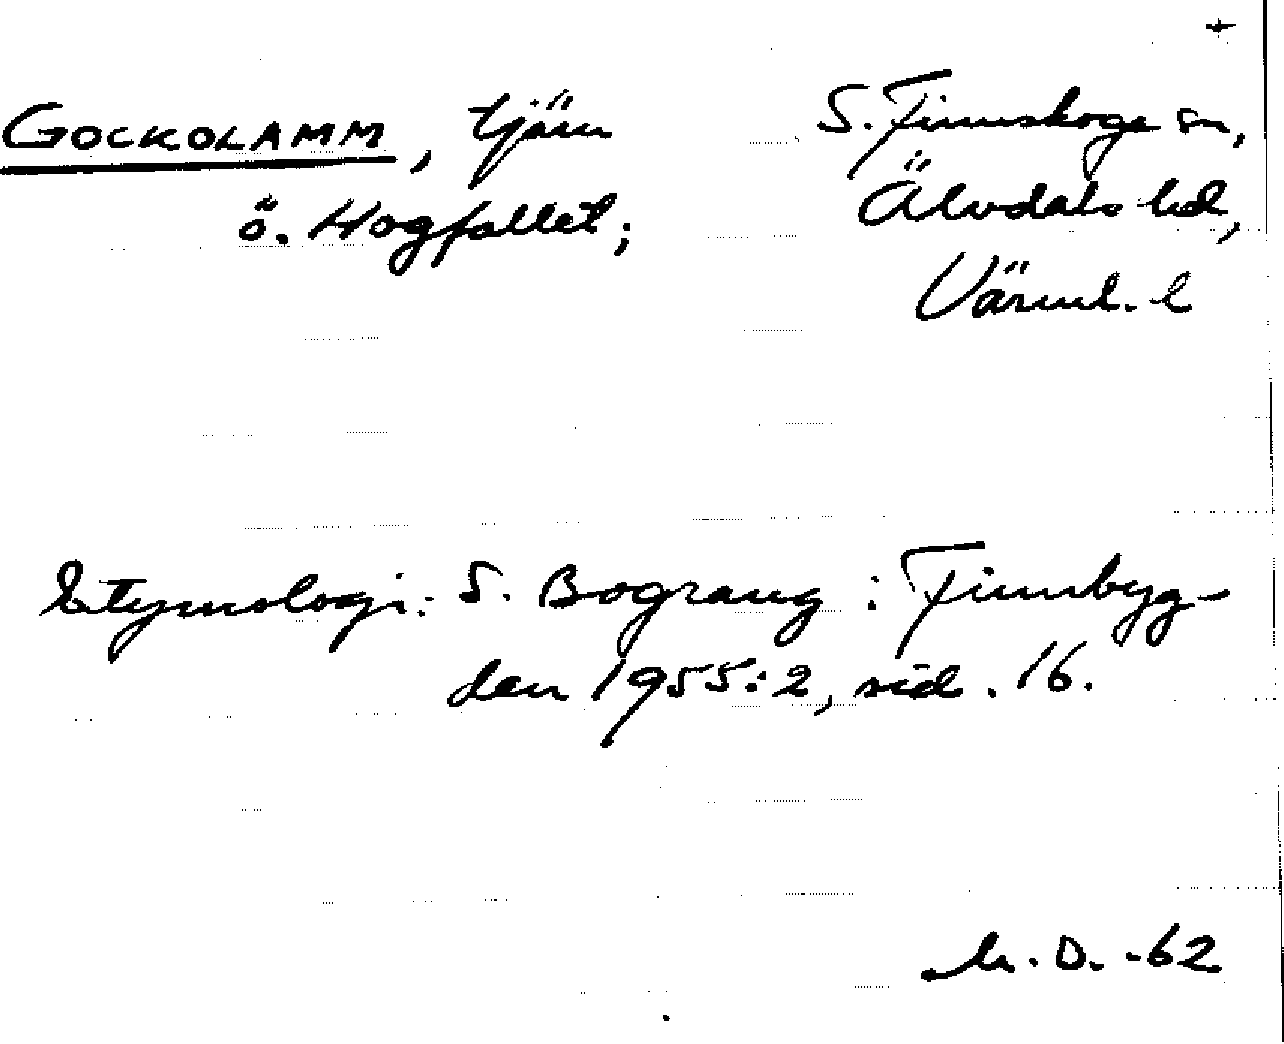 GOCKOLAMM, tjärn
ö. Hogfallet;
S. Finnskoga sn,
Älvdals hd,
Värml. l
Etymologi: S. Bograng i Finnbyg-
den 1955:2, sid. 16.
M. D. -62